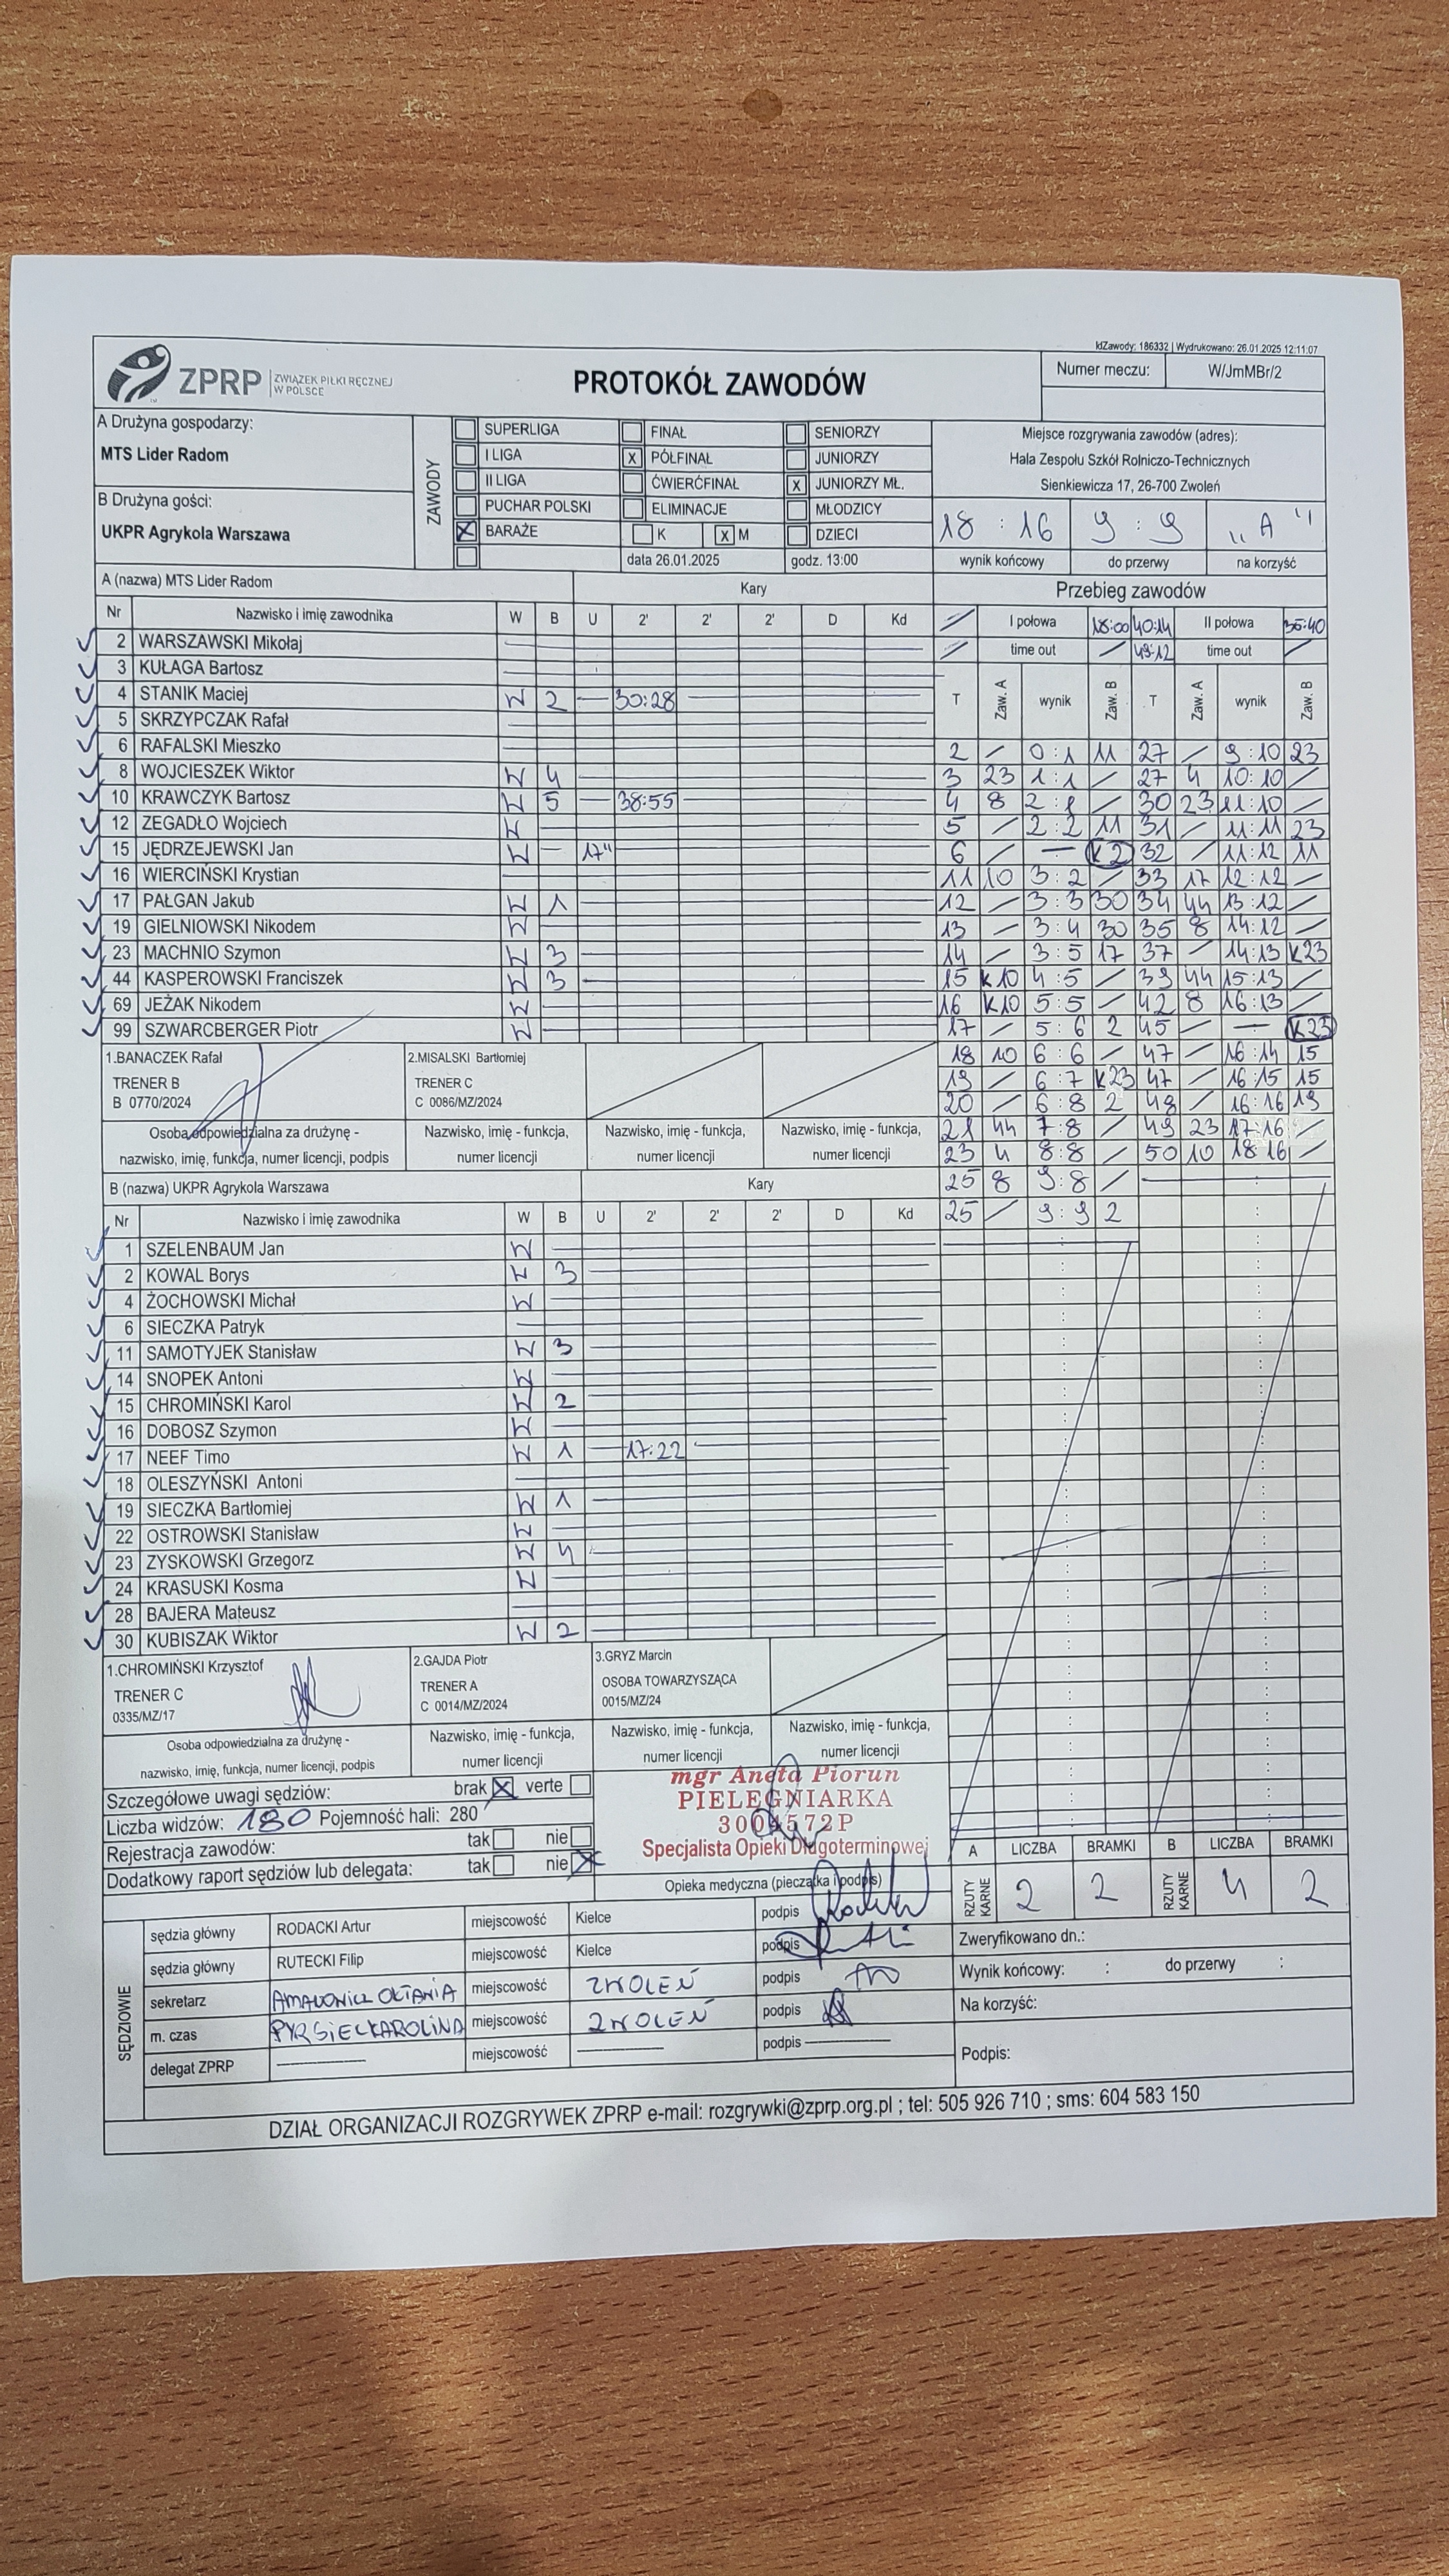 IdZawody: 186332 | Wydrukowano: 26.01.2025 12:11:07
ZPRP ZWIĄZEK PIŁKI RĘCZNEJ
W POLSCE
PROTOKÓŁ ZAWODÓW
Numer meczu: W/JmMBr/2
A Drużyna gospodarzy:
MTS Lider Radom
B Drużyna gości:
UKPR Agrykola Warszawa
ZAWODY
SUPERLIGA FINAŁ SENIORZY
I LIGA X PÓŁFINAŁ JUNIORZY
II LIGA ĆWIERĆFINAŁ X JUNIORZY MŁ.
PUCHAR POLSKI ELIMINACJE MŁODZICY
X BARAŻE K X M DZIECI
data 26.01.2025 godz. 13:00
Miejsce rozgrywania zawodów (adres):
Hala Zespołu Szkół Rolniczo-Technicznych
Sienkiewicza 17, 26-700 Zwoleń
18 : 16 9 : 9 „A"
wynik końcowy do przerwy na korzyść
A (nazwa) MTS Lider Radom Kary
Nr Nazwisko i imię zawodnika W B U 2' 2' 2' D Kd
2 WARSZAWSKI Mikołaj
3 KUŁAGA Bartosz
4 STANIK Maciej W 2 — 30:28
5 SKRZYPCZAK Rafał
6 RAFALSKI Mieszko
8 WOJCIESZEK Wiktor W 4
10 KRAWCZYK Bartosz W 5 — 38:55
12 ZEGADŁO Wojciech W
15 JĘDRZEJEWSKI Jan W — 17"
16 WIERCIŃSKI Krystian
17 PAŁGAN Jakub W 1
19 GIELNIOWSKI Nikodem W
23 MACHNIO Szymon W 3
44 KASPEROWSKI Franciszek W 3
69 JEŻAK Nikodem W
99 SZWARCBERGER Piotr W
1.BANACZEK Rafał
TRENER B
B 0770/2024
2.MISALSKI Bartłomiej
TRENER C
C 0086/MZ/2024
Osoba odpowiedzialna za drużynę -
nazwisko, imię, funkcja, numer licencji, podpis
Nazwisko, imię - funkcja,
numer licencji
Nazwisko, imię - funkcja,
numer licencji
Nazwisko, imię - funkcja,
numer licencji
B (nazwa) UKPR Agrykola Warszawa Kary
Nr Nazwisko i imię zawodnika W B U 2' 2' 2' D Kd
1 SZELENBAUM Jan W
2 KOWAL Borys W 3
4 ŻOCHOWSKI Michał W
6 SIECZKA Patryk
11 SAMOTYJEK Stanisław W 3
14 SNOPEK Antoni W
15 CHROMIŃSKI Karol W 2
16 DOBOSZ Szymon W
17 NEEF Timo W 1 — 17:22
18 OLESZYŃSKI Antoni
19 SIECZKA Bartłomiej W 1
22 OSTROWSKI Stanisław W
23 ZYSKOWSKI Grzegorz W 4
24 KRASUSKI Kosma W
28 BAJERA Mateusz
30 KUBISZAK Wiktor W 2
1.CHROMIŃSKI Krzysztof
TRENER C
0335/MZ/17
2.GAJDA Piotr
TRENER A
C 0014/MZ/2024
3.GRYZ Marcin
OSOBA TOWARZYSZĄCA
0015/MZ/24
Osoba odpowiedzialna za drużynę -
nazwisko, imię, funkcja, numer licencji, podpis
Nazwisko, imię - funkcja,
numer licencji
Nazwisko, imię - funkcja,
numer licencji
Nazwisko, imię - funkcja,
numer licencji
Przebieg zawodów
I połowa 18:00 40:14 II połowa 35:40
time out / 49:12 time out /
T Zaw. A wynik Zaw. B T Zaw. A wynik Zaw. B
2 / 0:1 11 27 / 9:10 23
3 23 1:1 / 27 4 10:10 /
4 8 2:1 / 30 23 11:10 /
5 / 2:2 11 31 / 11:11 23
6 / — K2 32 / 11:12 11
11 10 3:2 / 33 17 12:12 /
12 / 3:3 30 34 44 13:12 /
13 / 3:4 30 35 8 14:12 /
14 / 3:5 17 37 / 14:13 K23
15 K10 4:5 / 39 44 15:13 /
16 K10 5:5 / 42 8 16:13 /
17 / 5:6 2 45 / — K23
18 10 6:6 / 47 / 16:14 15
19 / 6:7 K23 47 / 16:15 15
20 / 6:8 2 48 / 16:16 19
21 44 7:8 / 49 23 17:16 /
23 4 8:8 / 50 10 18:16 /
25 8 9:8 /
25 / 9:9 2
Szczegółowe uwagi sędziów: brak X verte
Liczba widzów: 180 Pojemność hali: 280
Rejestracja zawodów: tak nie
Dodatkowy raport sędziów lub delegata: tak nie X
mgr Aneta Piorun
PIELĘGNIARKA
3004572P
Specjalista Opieki Długoterminowej
Opieka medyczna (pieczątka i podpis)
A LICZBA BRAMKI B LICZBA BRAMKI
RZUTY KARNE 2 2 RZUTY KARNE 4 2
SĘDZIOWIE
sędzia główny RODACKI Artur miejscowość Kielce podpis
sędzia główny RUTECKI Filip miejscowość Kielce podpis
sekretarz miejscowość ZWOLEŃ podpis
m. czas miejscowość ZWOLEŃ podpis
delegat ZPRP miejscowość podpis
Zweryfikowano dn.:
Wynik końcowy: : do przerwy :
Na korzyść:
Podpis:
DZIAŁ ORGANIZACJI ROZGRYWEK ZPRP e-mail: rozgrywki@zprp.org.pl ; tel: 505 926 710 ; sms: 604 583 150